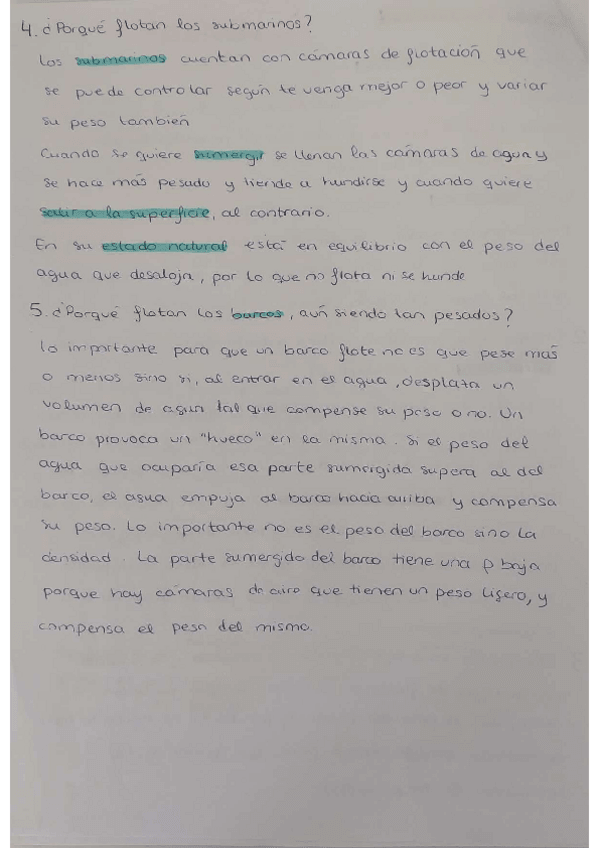 4. ¿Porqué flotan los submarinos?
Los submarinos cuentan con cámaras de flotación que
se puede controlar según te venga mejor o peor y variar
su peso también
Cuando se quiere sumergir se llenan las cámaras de agua y
se hace más pesado y tiende a hundirse y cuando quiere
salir a la superficie, al contrario.
En su estado natural está en equilibrio con el peso del
agua que desaloja, por lo que no flota ni se hunde
5. ¿Porqué flotan los barcos, aún siendo tan pesados?
Lo importante para que un barco flote no es que pese más
o menos sino si, al entrar en el agua, desplata un
volumen de agua tal que compense su peso o no. Un
barco provoca un "hueco" en la misma. Si el peso del
agua que ocuparía esa parte sumergida supera al del
barco, el agua empuja al barco hacia arriba y compensa
su peso. Lo importante no es el peso del barco sino la
densidad. La parte sumergido del barco tiene una ρ baja
porque hay cámaras de aire que tienen un peso ligero, y
compensa el peso del mismo.